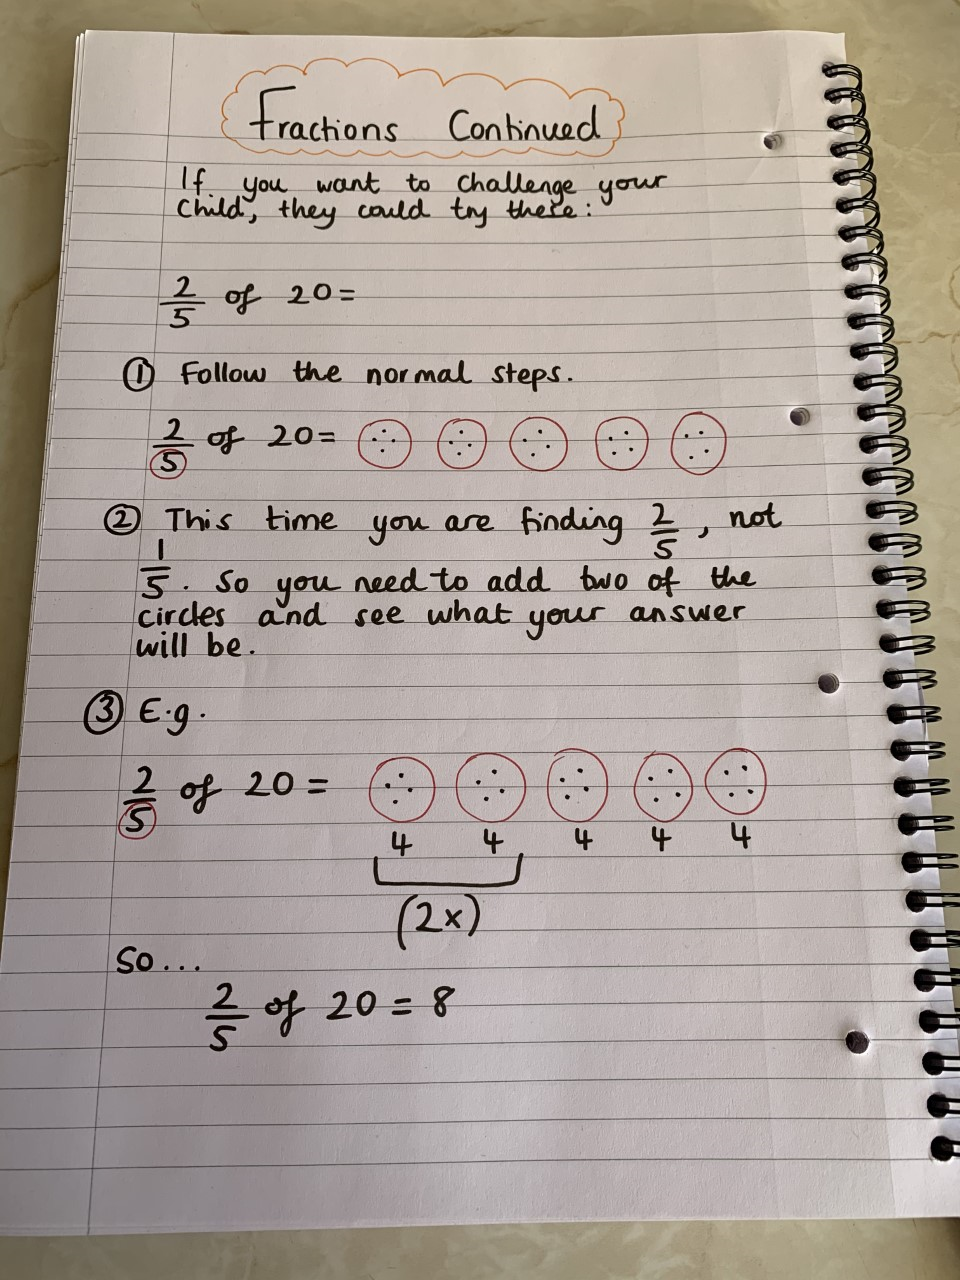 Fractions Continued
If you want to challenge your
child, they could try these:
2/5 of 20=
① Follow the normal steps.
2/5 of 20=
② This time you are finding 2/5, not
1/5. So you need to add two of the
circles and see what your answer
will be.
③ E.g.
2/5 of 20 =
4 4 4 4 4
(2x)
So...
2/5 of 20 = 8